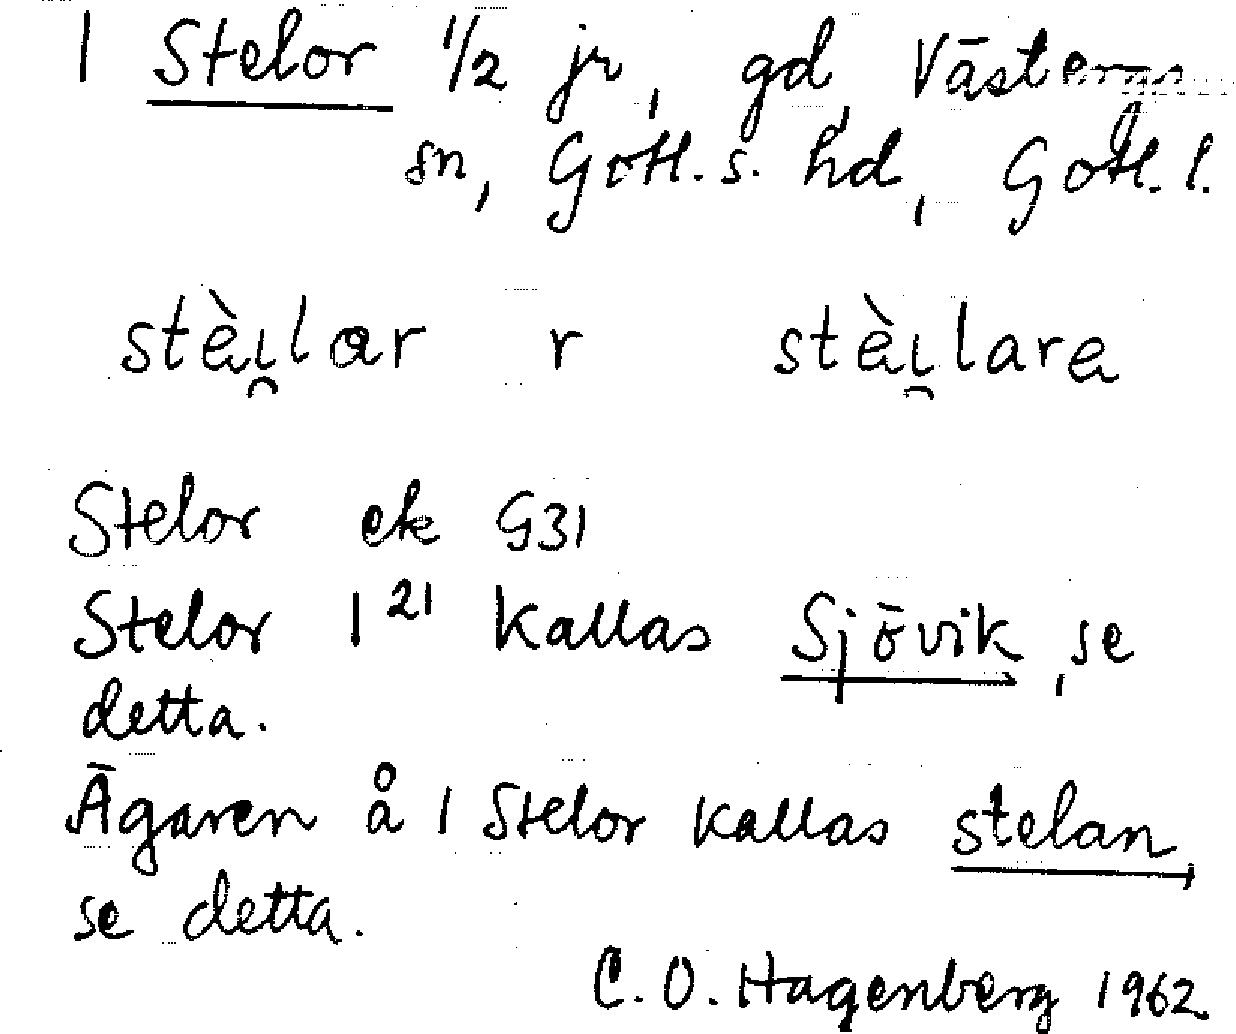 1 Stelor 1/2 jr, gd, Västergarn
sn, Gotl. s. hd, Gotl. l.
stèi̯lar r stèi̯lara
Stelor ek G31
Stelor 1²¹ kallas Sjövik, se
detta.
Ägaren å 1 Stelor kallas stelan,
se detta.
C. O. Hagenberg 1962